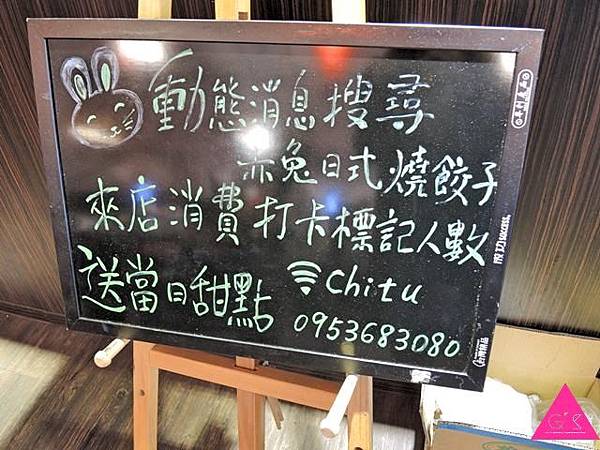 動態消息搜尋
赤兔日式燒餃子
來店消費打卡標記人數
送當日甜點 Chitu
0953683080
成功 success
台灣精品
G'S